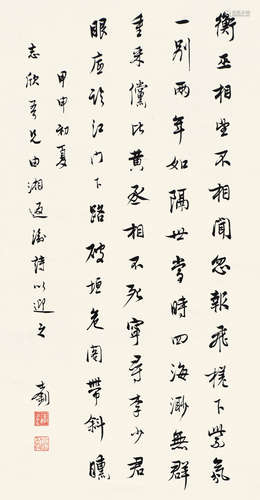 衡巫相望不相聞忽報飛槎下紫氛
一別兩年如隔世當時四海渺無群
重來儻比黃丞相不死寧尋李少君
眼江門下路破垣危閣帶斜曛
甲申初夏
志欣吾兄由湘返渝詩以迎之
士釗